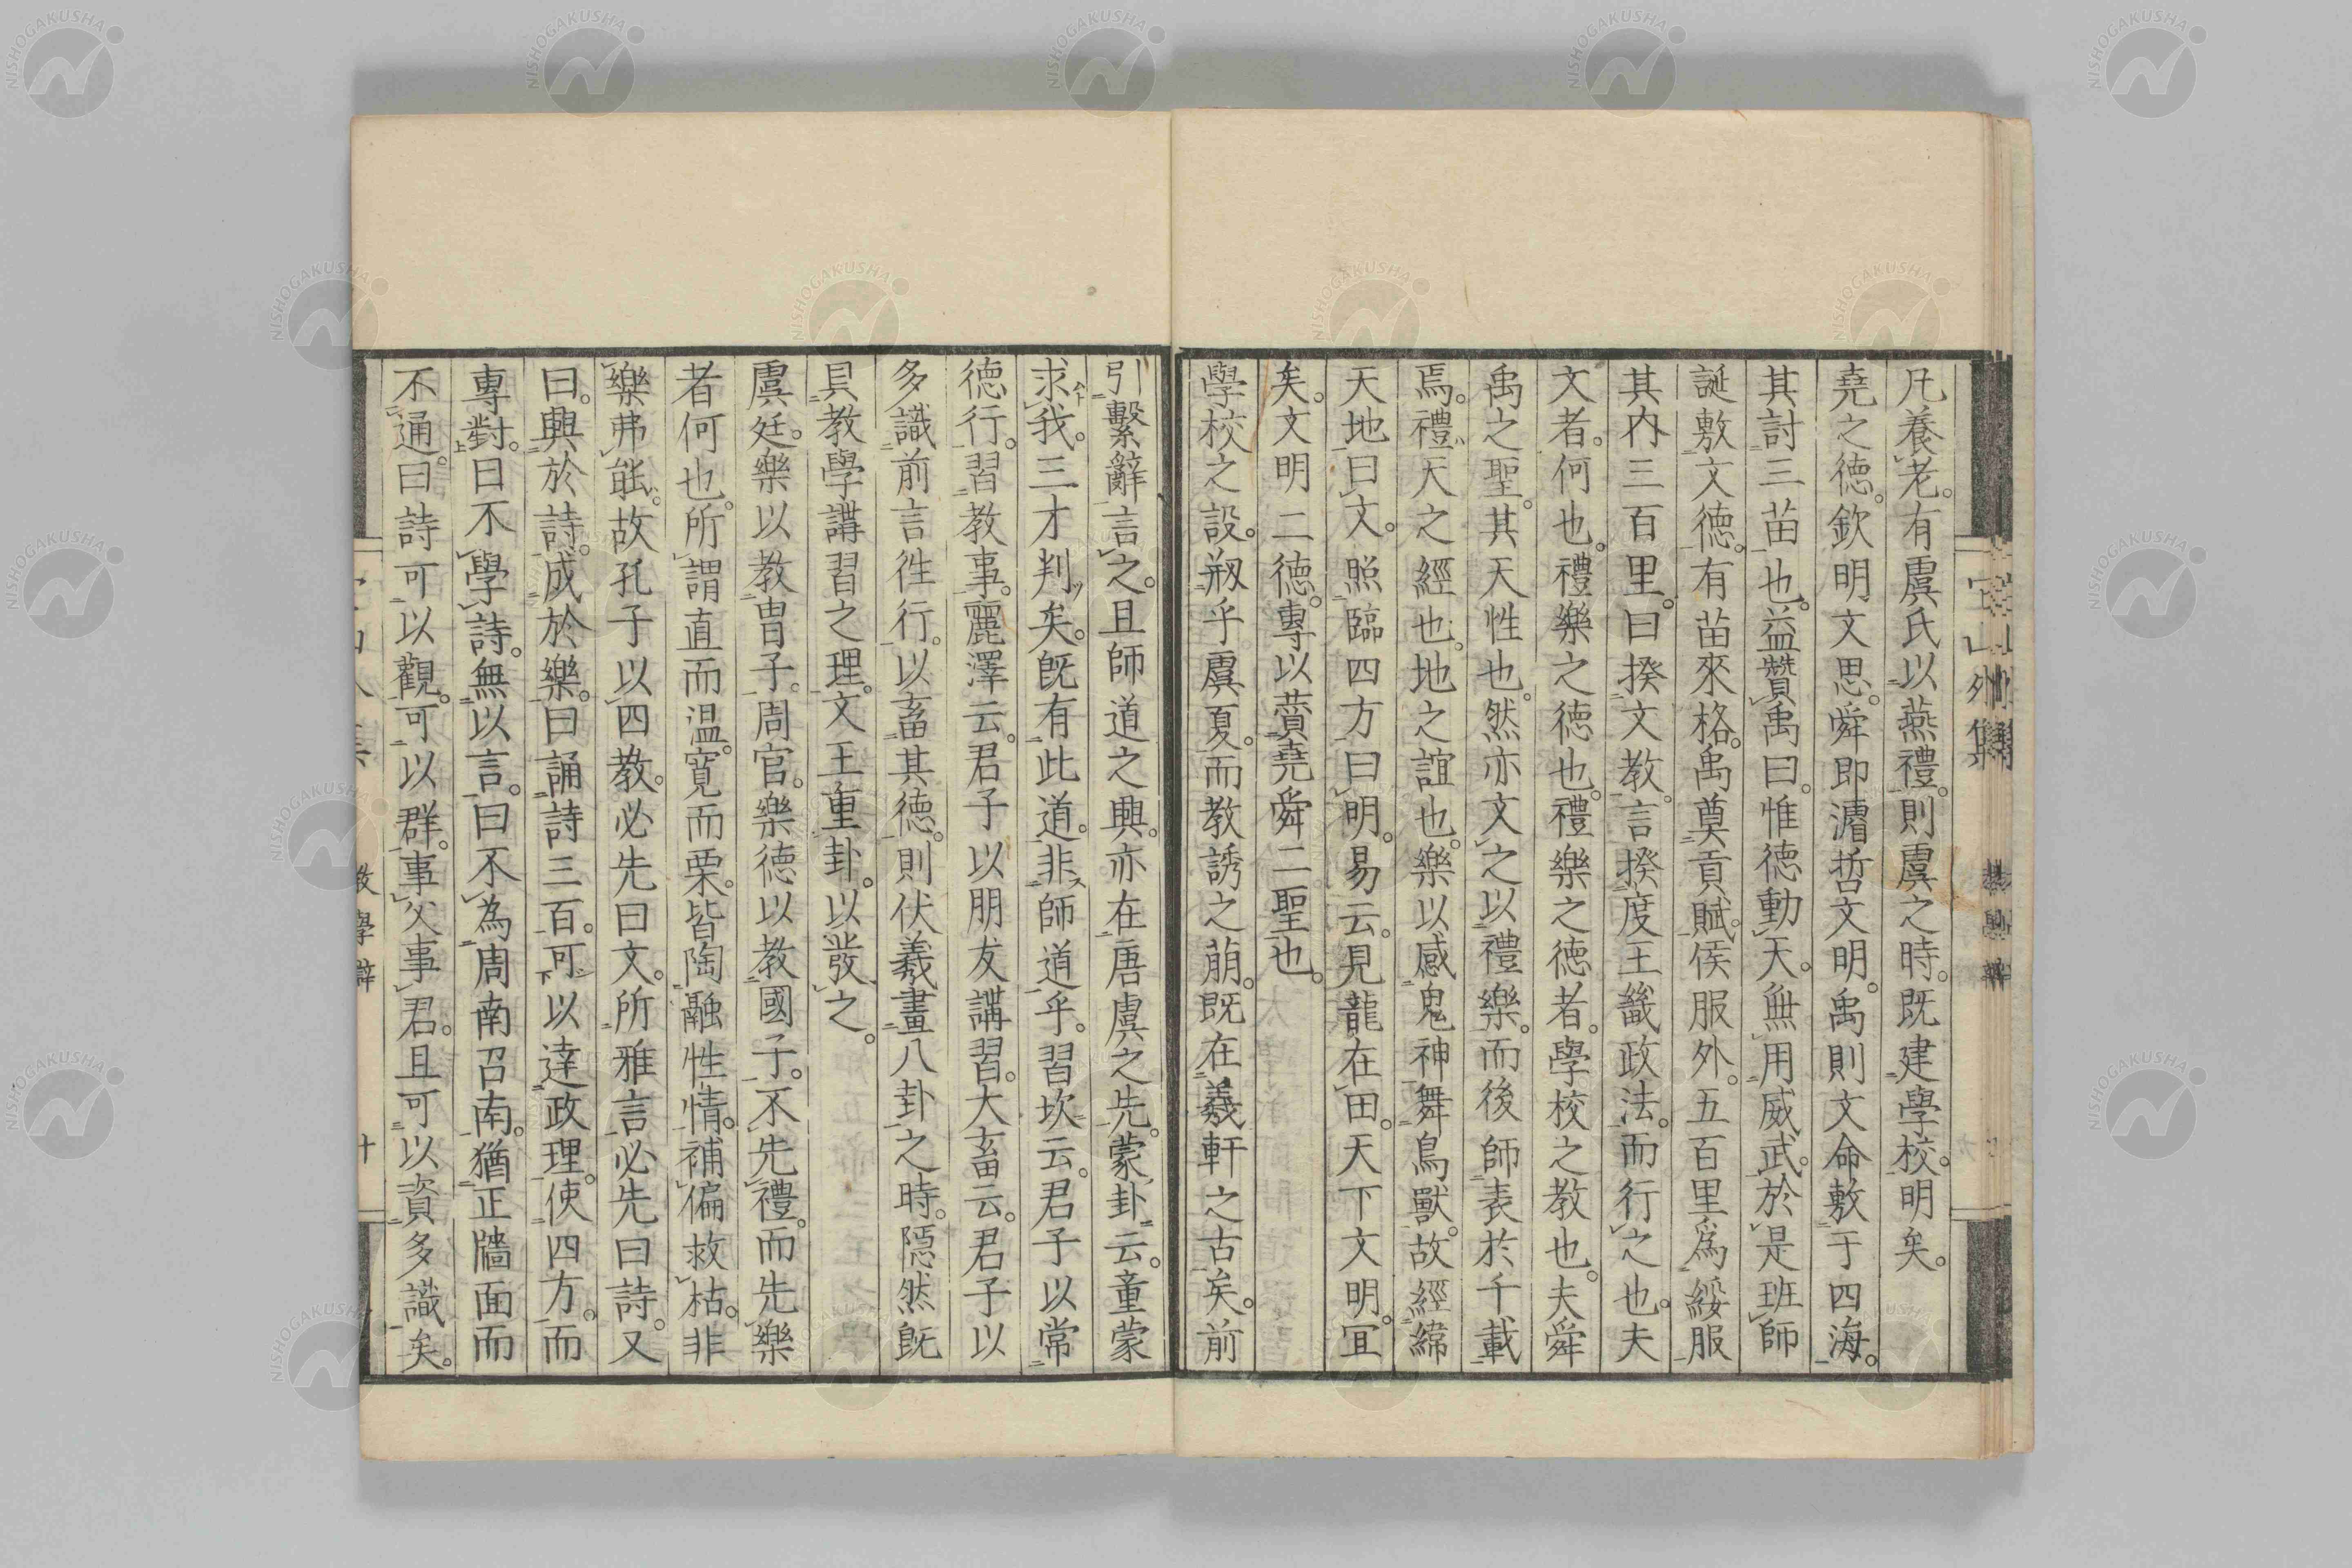 凡養老。有虞氏以燕禮。則虞之時。既建學校。明矣。
堯之德。欽明文思。舜即濬哲文明。禹則文命敷于四海。
其討三苗也。益贊禹曰。惟德動天。無用威武。於是班師
誕敷文德。有苗來格。禹奠貢賦。侯服外。五百里爲綏服
其内三百里。曰揆文教。言揆度王畿政法。而行之也。夫
文者。何也。禮樂之德也。禮樂之德者。學校之教也。夫舜
禹之聖。其天性也。然亦文之以禮樂。而後師表於千載
焉。禮天之經也。地之誼也。樂以感鬼神舞鳥獸。故經緯
天地曰文。照臨四方曰明。易云。見龍在田。天下文明。宜
矣。文明二德。專以賛堯舜二聖也。
學校之設。剏乎虞夏。而教誘之萠。既在羲軒之古矣。前
引繫辭言之。且師道之興。亦在唐虞之先。蒙卦云。童蒙
求我。三才判矣。既有此道。非師道乎。習坎云。君子以常
德行。習教事。麗澤云。君子以朋友講習。大畜云。君子以
多識前言徃行。以畜其德。則伏羲畫八卦之時。隱然既
具教學講習之理。文王重卦。以發之。
虞廷。樂以教冑子。周官。樂德以教國子。不先禮。而先樂
者何也。所謂直而温。寬而栗。皆陶融性情。補偏救枯。非
樂弗能。故孔子以四教。必先曰文。所雅言必先曰詩。又
曰。興於詩。成於樂。曰誦詩三百。可以達政理。使四方。而
專對。曰不學詩。無以言。曰不為周南召南。猶正牆面而
不通。曰詩可以觀。可以群。事父事君。且可以資多識矣。
教學辯
十
外集
NISHOGAKUSHA